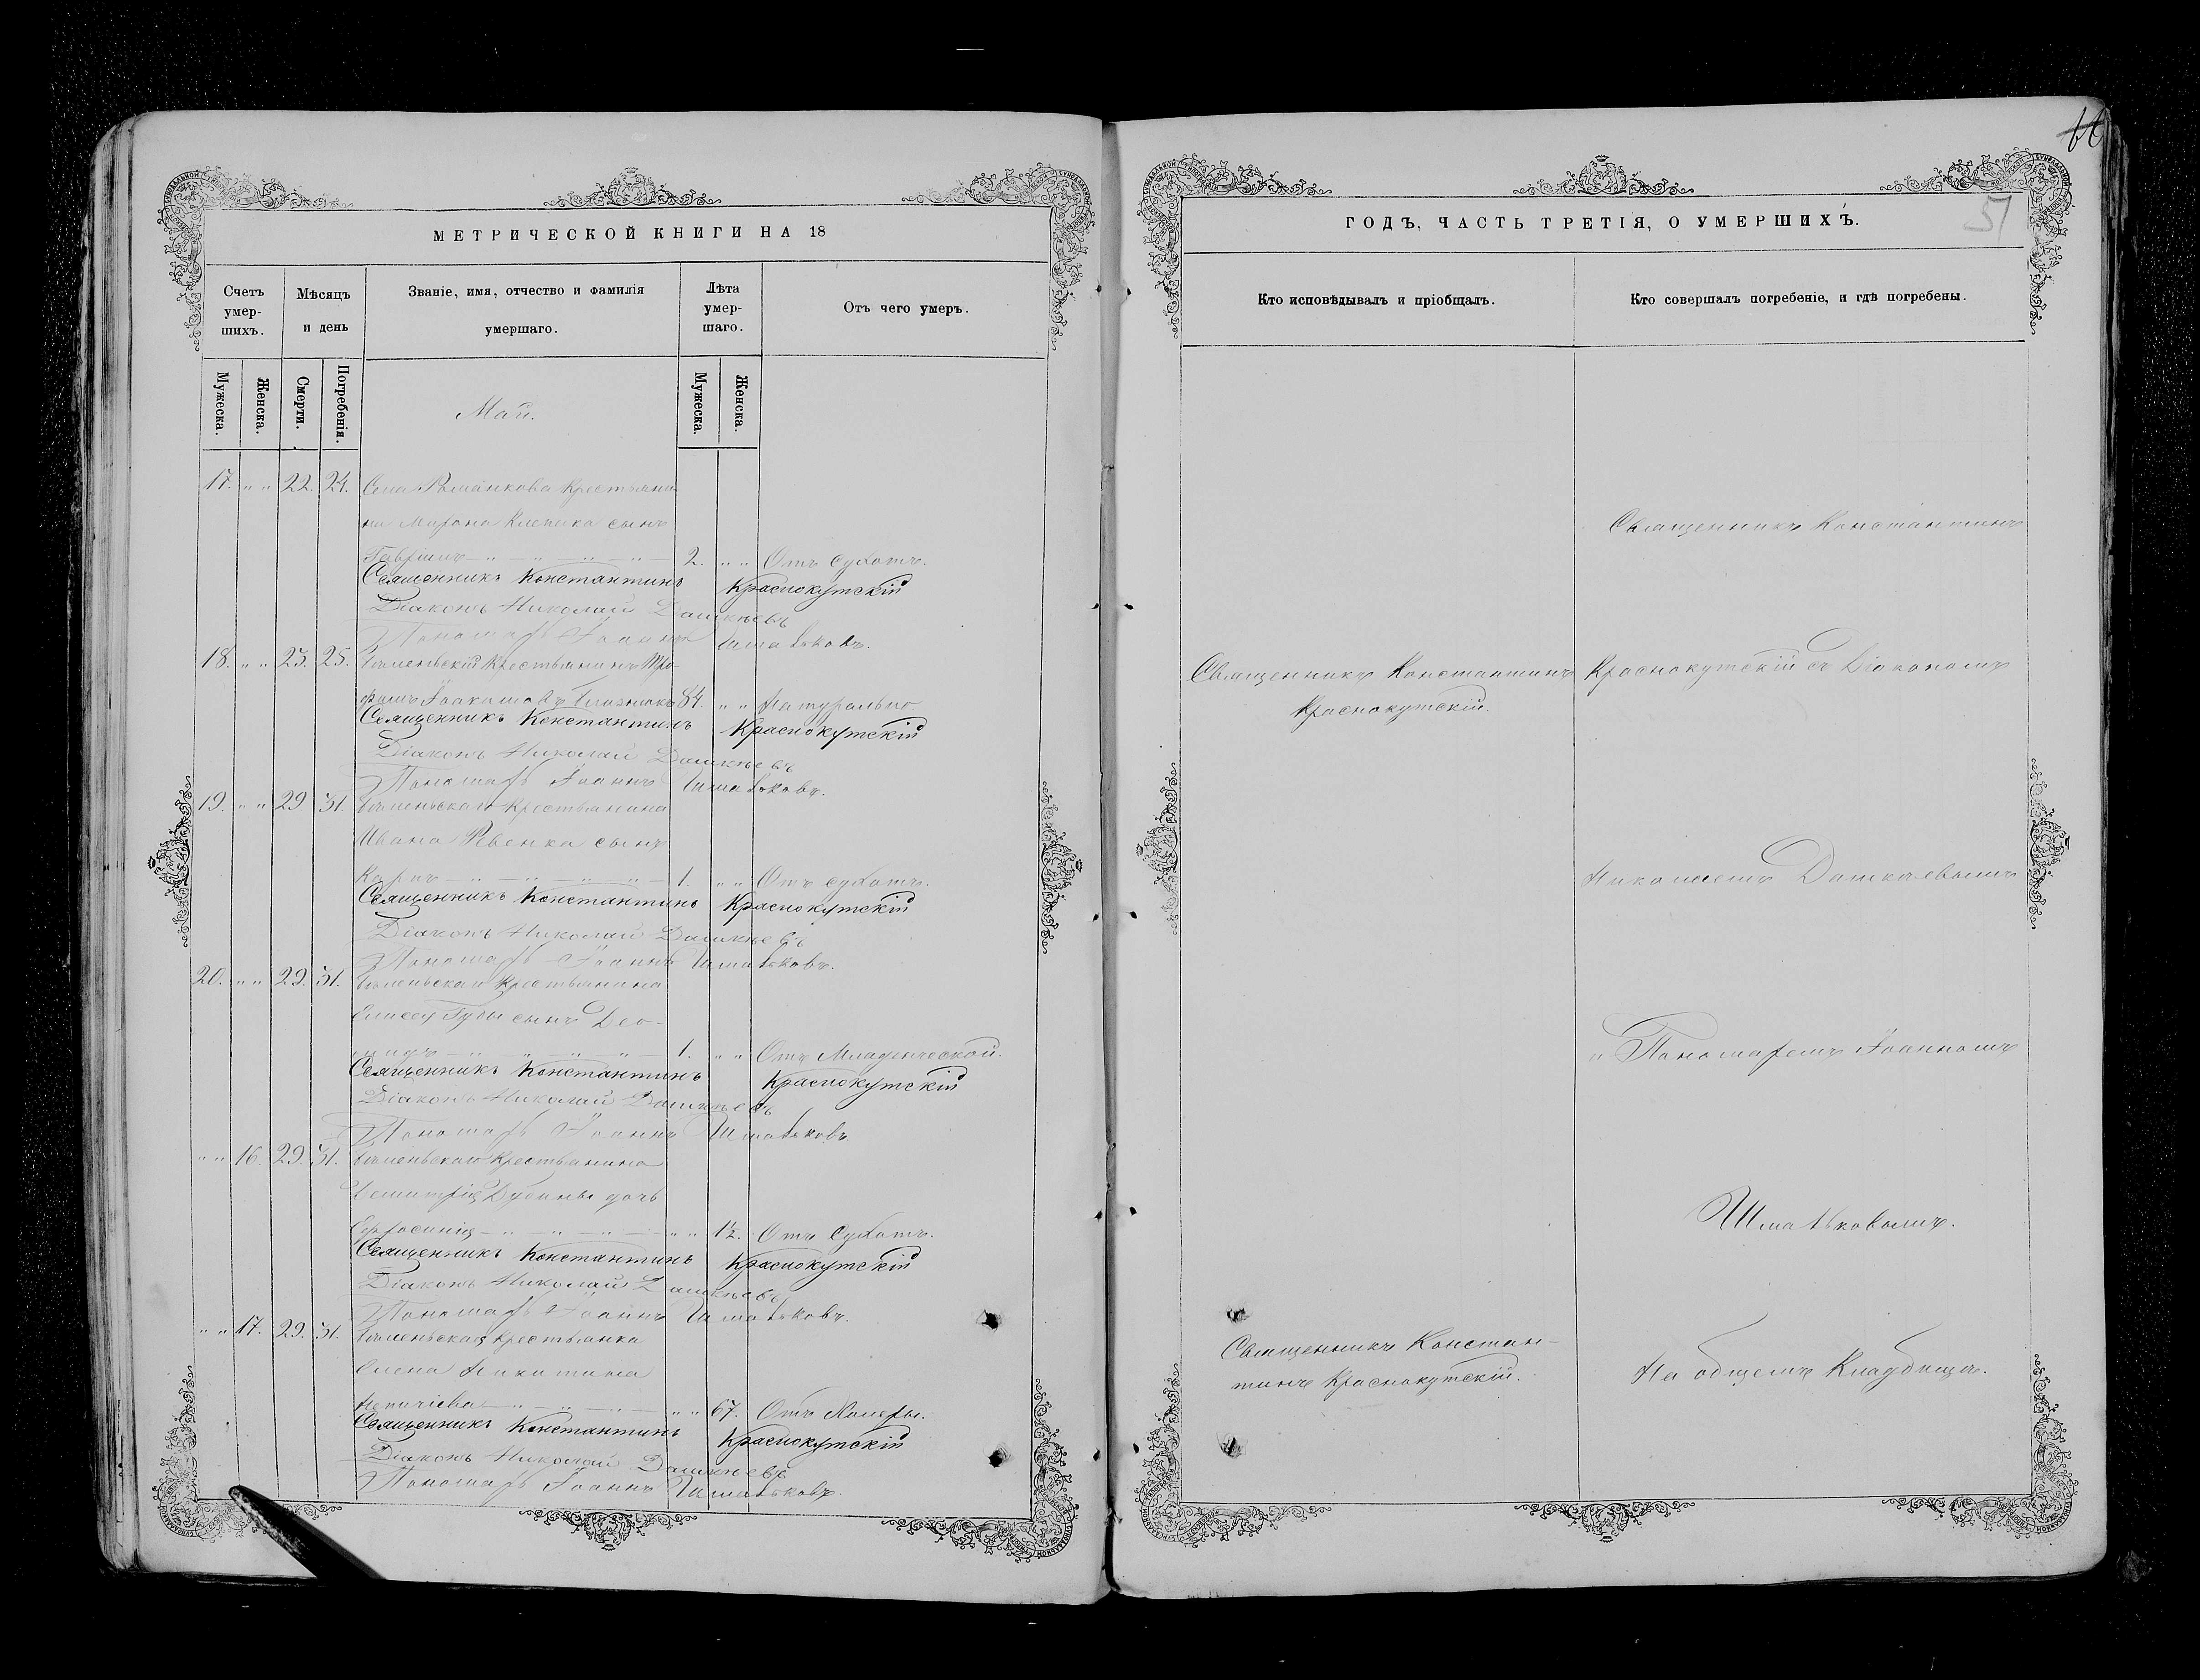 МЕТРИЧЕСКОЙ КНИГИ НА 18
Счетъ умер-
шихъ.
Мѣсяцъ
и день
Званіе, имя, отчество и фамилія
умершаго.
Лѣта
умер-
шаго.
Отъ чего умеръ.
Мужеска.
Женска.
Смерти.
Погребенія.
Мужеска.
Женска.
Май.
17. " " 22. 24. Села крестьяни
на сынъ
Гавріилъ 2. " " Отъ сухотъ.
Священникъ Константинъ Краснокутскій
Діаконъ Николай Дашкѣевъ
Пономарь Іоаннъ Шматьковъ.
18. " " 23. 25. Крестьянинъ Тро-
фимъ 84. " " Натурально
Священникъ Константинъ Краснокутскій
Діаконъ Николай Дашкѣевъ
Пономарь Іоаннъ Шматьковъ.
19. " " 29 31. Крестьянина
Ивана Ревенка сынъ
Карпъ 1. " " Отъ сухотъ.
Священникъ Константинъ Краснокутскій
Діаконъ Николай Дашкѣевъ
Пономарь Іоаннъ Шматьковъ.
20. " " 29. 31. Крестьянина
Елисея Губы сынъ Део-
мидъ 1. " " Отъ Младенческой.
Священникъ Константинъ Краснокутскій
Діаконъ Николай Дашкѣевъ
Пономарь Іоаннъ Шматьковъ
" " 16. 29. 31. Крестьянина
Димитрія Дубины дочь
Ефросинія " " 1½. Отъ Сухотъ.
Священникъ Константинъ Краснокутскій
Діаконъ Николай Дашкѣевъ
Пономарь Іоаннъ Шматьковъ.
" " 17. 29. 31. крестьянка
Елена Никитина
" " 67. Отъ Холеры.
Священникъ Константинъ Краснокутскій
Діаконъ Николай Дашкѣевъ
Пономарь Іоаннъ Шматьковъ.
ГОДЪ, ЧАСТЬ ТРЕТІЯ, О УМЕРШИХЪ.
57
Кто исповѣдывалъ и пріобщалъ.
Кто совершалъ погребеніе, и гдѣ погребены.
Священникъ Константинъ
Священникъ Константинъ
Краснокутскій.
Краснокутскій съ Діакономъ
Николаемъ Дашкѣевымъ
и Пономаремъ Іоанномъ
Шматьковымъ.
Священникъ Констан-
тинъ Краснокутскій.
На общемъ Кладбищѣ.